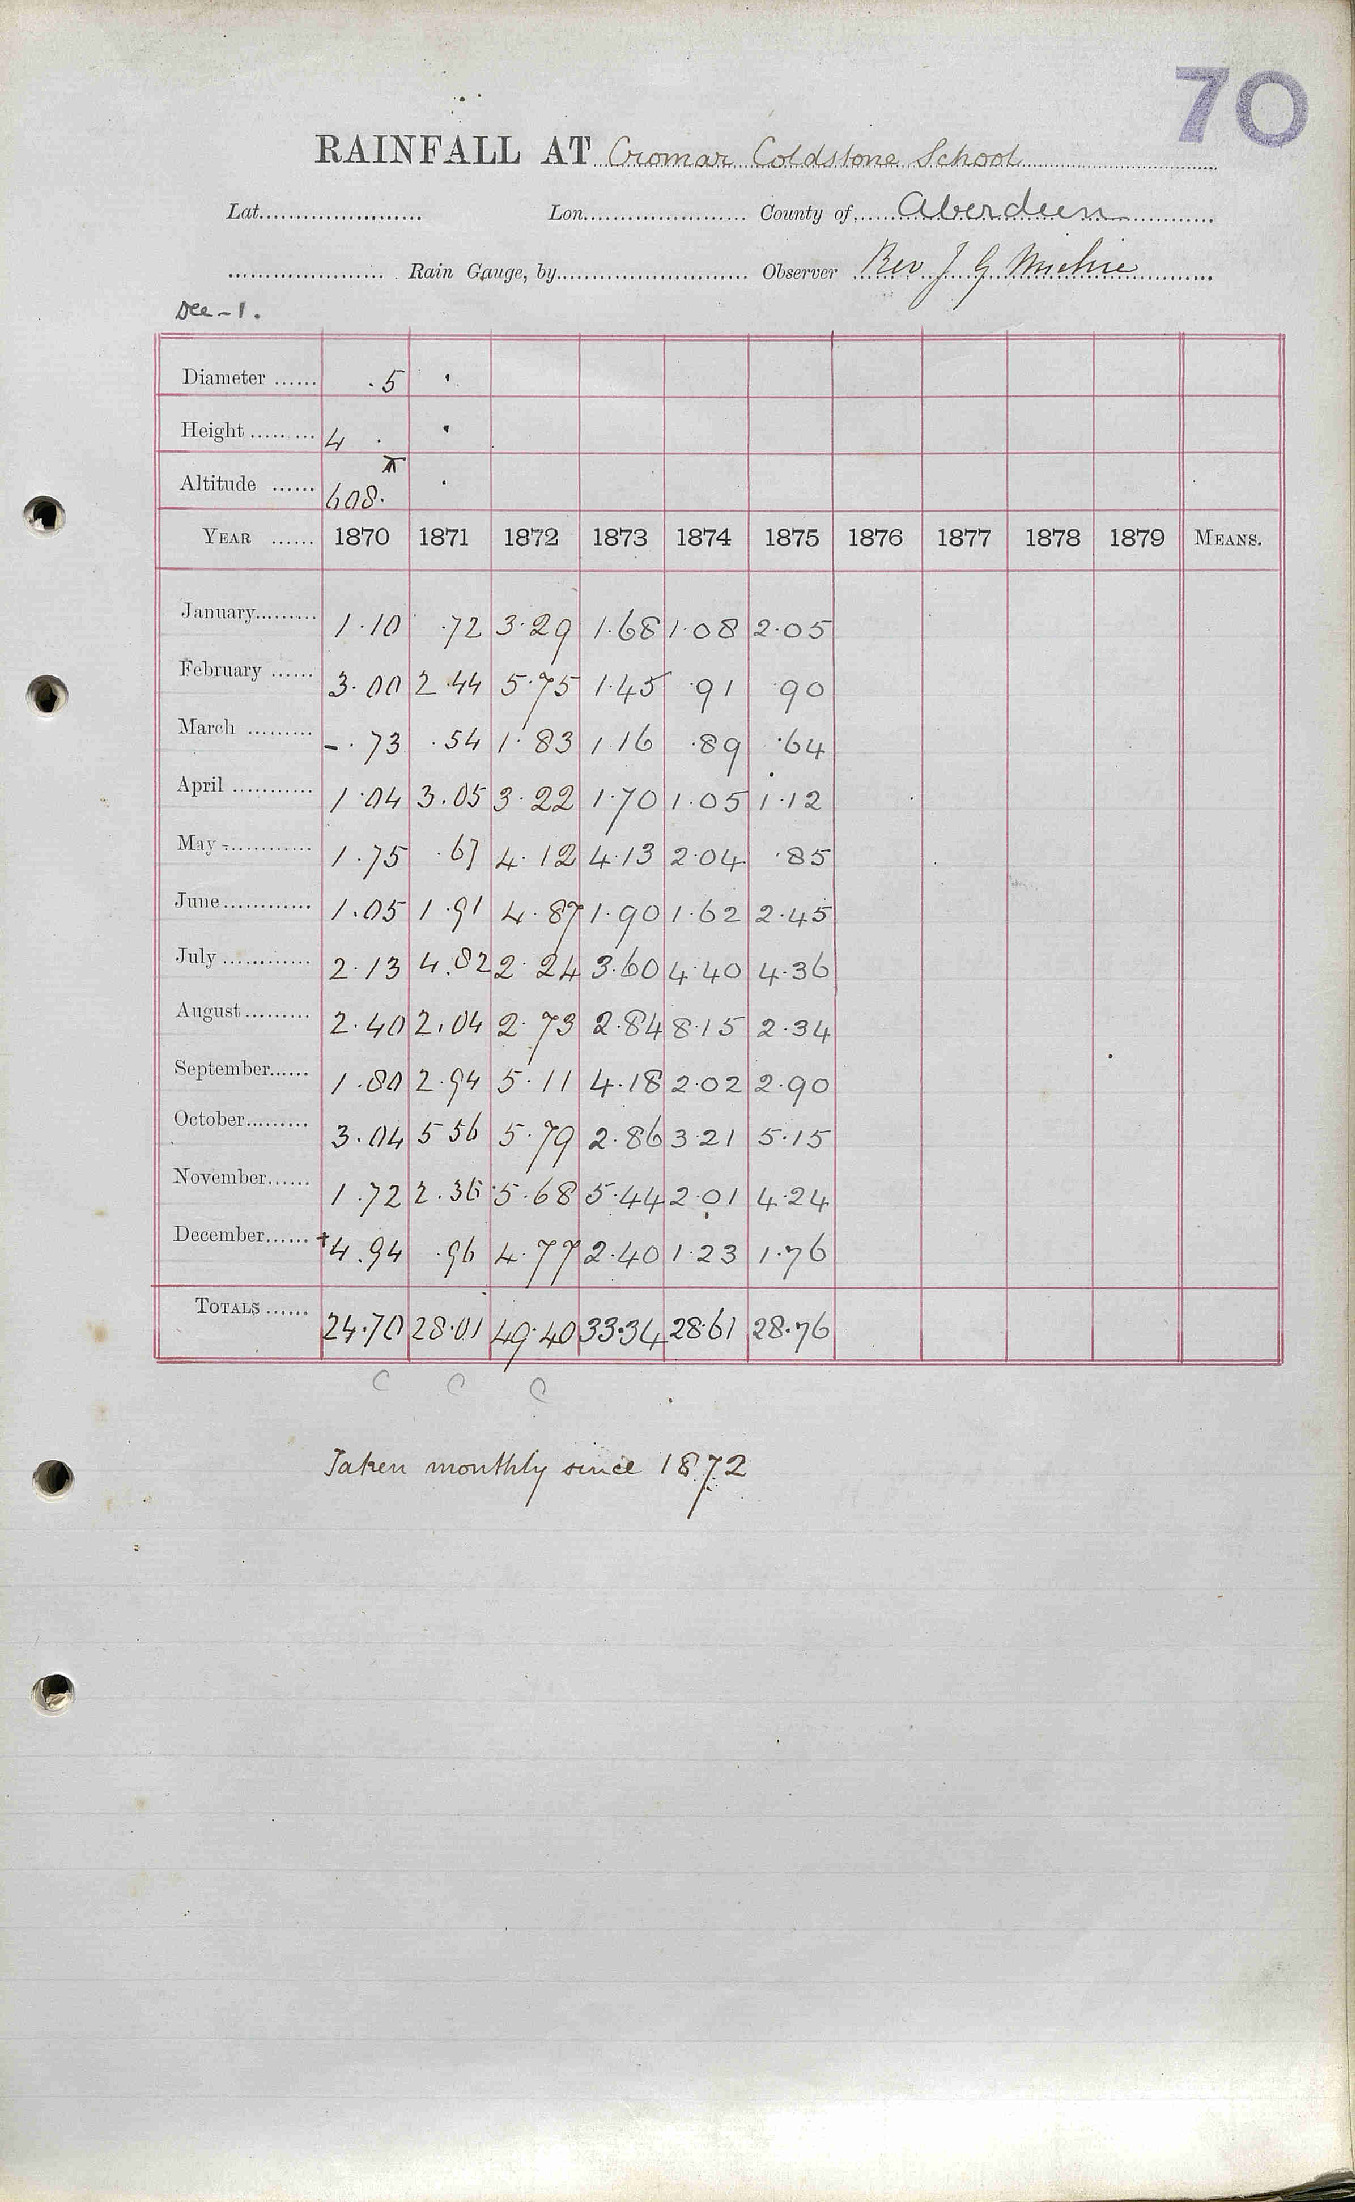 70
RAINFALL AT Cromar Coldstone School
Lat. Lon. County of Aberdeen
Rain Gauge, by Observer Rev J G Michie
Dee-1.
Diameter .5 "
Height 4 . "
Altitude 608. "
YEAR 1870 1871 1872 1873 1874 1875 1876 1877 1878 1879 MEANS.
January 1.10 .72 3.29 1.68 1.08 2.05
February 3.00 2.44 5.75 1.45 .91 .90
March -.73 .54 1.83 1.16 .89 .64
April 1.04 3.05 3.22 1.70 1.05 1.12
May 1.75 .67 4.12 4.13 2.04 .85
June 1.05 1.91 4.87 1.90 1.62 2.45
July 2.13 4.82 2.24 3.60 4.40 4.36
August 2.40 2.04 2.73 2.84 8.15 2.34
September 1.80 2.94 5.11 4.18 2.02 2.90
October 3.04 5.56 5.79 2.86 3.21 5.15
November 1.72 2.36 5.68 5.44 2.01 4.24
December +4.94 .96 4.77 2.40 1.23 1.76
TOTALS 24.70 28.01 49.40 33.34 28.61 28.76
C C C
Taken monthly since 1872